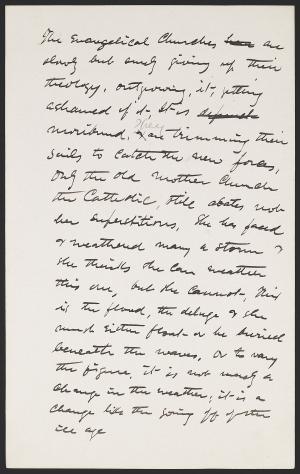 The evangelical Churches have are
slowly but surely giving up their
theology, outgrowing it, getting
ashamed of it. It is
moribund, They are trimming their
sails to catch the new forces,
only the old mother Church
the Catholic, still abates not
her superstitions, She has faced
& weathered many a storm &
she thinks she can weather
this one, but she cannot. This
is the flood, the deluge & she
must either float or be buried
beneath the waves, or to vary
the figure, it is not merely a
change in the weather, it is a
change like the going off of the
ice age